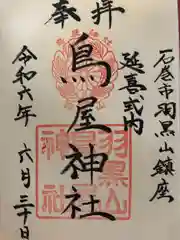 奉拝
石巻市羽黒山鎮座
延喜式内
鳥屋神社
令和六年 六月三十日
羽黒山
鳥屋
神社